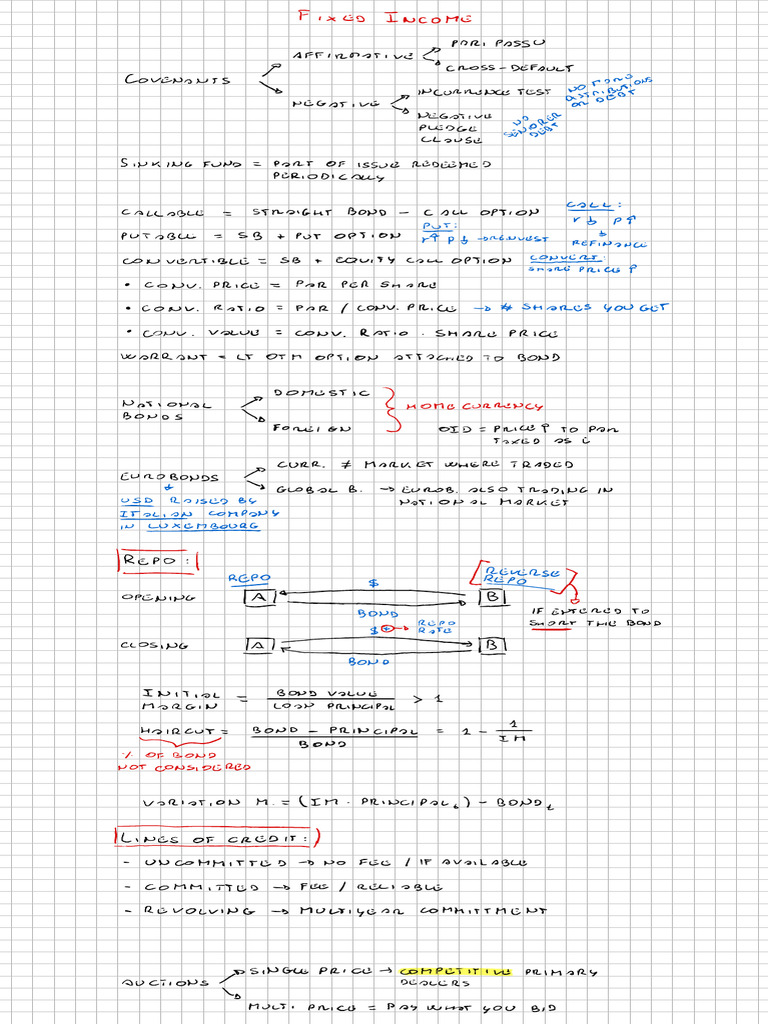 FIXED INCOME
COVENANTS
AFFIRMATIVE
PARI PASSU
CROSS-DEFAULT
NEGATIVE
INCURRENCE TEST
NO MORE
DISTRIBUTIONS
OR DEBT
NEGATIVE
PLEDGE
CLAUSE
NO
SENIORER
DEBT
SINKING FUND = PART OF ISSUE REDEEMED
PERIODICALLY
CALLABLE = STRAIGHT BOND - CALL OPTION
CALL:
r ↓ P↑
↓
REFINANCE
PUTABLE = SB + PUT OPTION
PUT:
r↑ P↓ → REINVEST
CONVERTIBLE = SB + EQUITY CALL OPTION
CONVERT:
SHARE PRICE ↑
• CONV. PRICE = PAR PER SHARE
• CONV. RATIO = PAR / CONV. PRICE → # SHARES YOU GET
• CONV. VALUE = CONV. RATIO · SHARE PRICE
WARRANT = LT OTM OPTION ATTACHED TO BOND
NATIONAL
BONDS
DOMESTIC
FOREIGN
HOME CURRENCY
OID = PRICE ↑ TO PAR
TAXED AS i
EUROBONDS
CURR. ≠ MARKET WHERE TRADED
GLOBAL B. → EUROB. ALSO TRADING IN
NATIONAL MARKET
USD RAISED BY
ITALIAN COMPANY
IN LUXEMBOURG
REPO:
REPO
$
REVERSE
REPO
OPENING
A
B
BOND
IF ENTERED TO
SHORT THE BOND
$ + → REPO
RATE
CLOSING
A
B
BOND
INITIAL
MARGIN = BOND VALUE / LOAN PRINCIPAL > 1
HAIRCUT = BOND - PRINCIPAL / BOND = 1 - 1 / IM
% OF BOND
NOT CONSIDERED
VARIATION M. = (IM · PRINCIPALt) - BONDt
LINES OF CREDIT:
- UNCOMMITTED → NO FEE / IF AVAILABLE
- COMMITTED → FEE / RELIABLE
- REVOLVING → MULTIYEAR COMMITTMENT
AUCTIONS
SINGLE PRICE → COMPETITIVE PRIMARY
DEALERS
MULTI. PRICE = PAY WHAT YOU BID